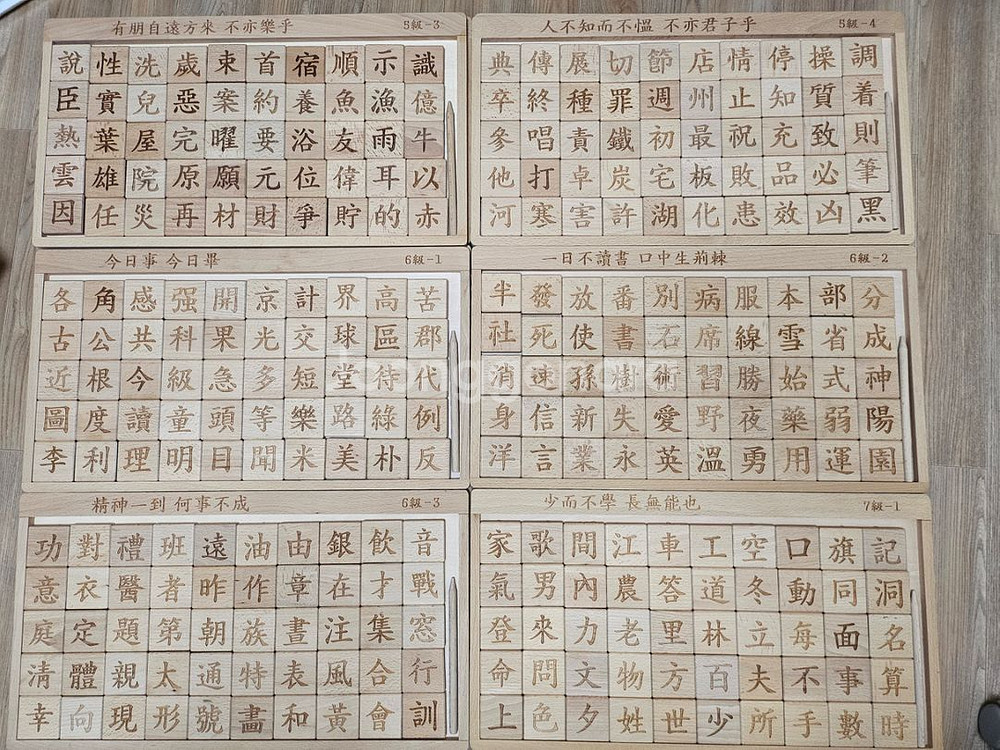 有朋自遠方來 不亦樂乎 5級-3
說性洗歲束首宿順示識
臣實兒惡案約養魚漁億
熱葉屋完曜要浴友雨牛
雲雄院原願元位偉耳以
因任災再材財爭貯的赤
人不知而不慍 不亦君子乎 5級-4
典傳展切節店情停操調
卒終種罪週州止知質着
參唱責鐵初最祝充致則
他打卓炭宅板敗品必筆
河寒害許湖化患效凶黑
今日事 今日畢 6級-1
各角感强開京計界高苦
古公共科果光交球區郡
近根今級急多短堂待代
圖度讀童頭等樂路綠例
李利理明目聞米美朴反
一日不讀書 口中生荊棘 6級-2
半發放番別病服本部分
社死使書石席線雪省成
消速孫樹術習勝始式神
身信新失愛野夜藥弱陽
洋言業永英溫勇用運園
精神一到 何事不成 6級-3
功對禮班遠油由銀飮音
意衣醫者昨作章在才戰
庭定題第朝族晝注集窓
淸體親太通特表風合行
幸向現形號畵和黃會訓
少而不學 長無能也 7級-1
家歌間江車工空口旗記
氣男內農答道冬動同洞
登來力老里林立每面名
命問文物方百夫不事算
上色夕姓世少所手數時